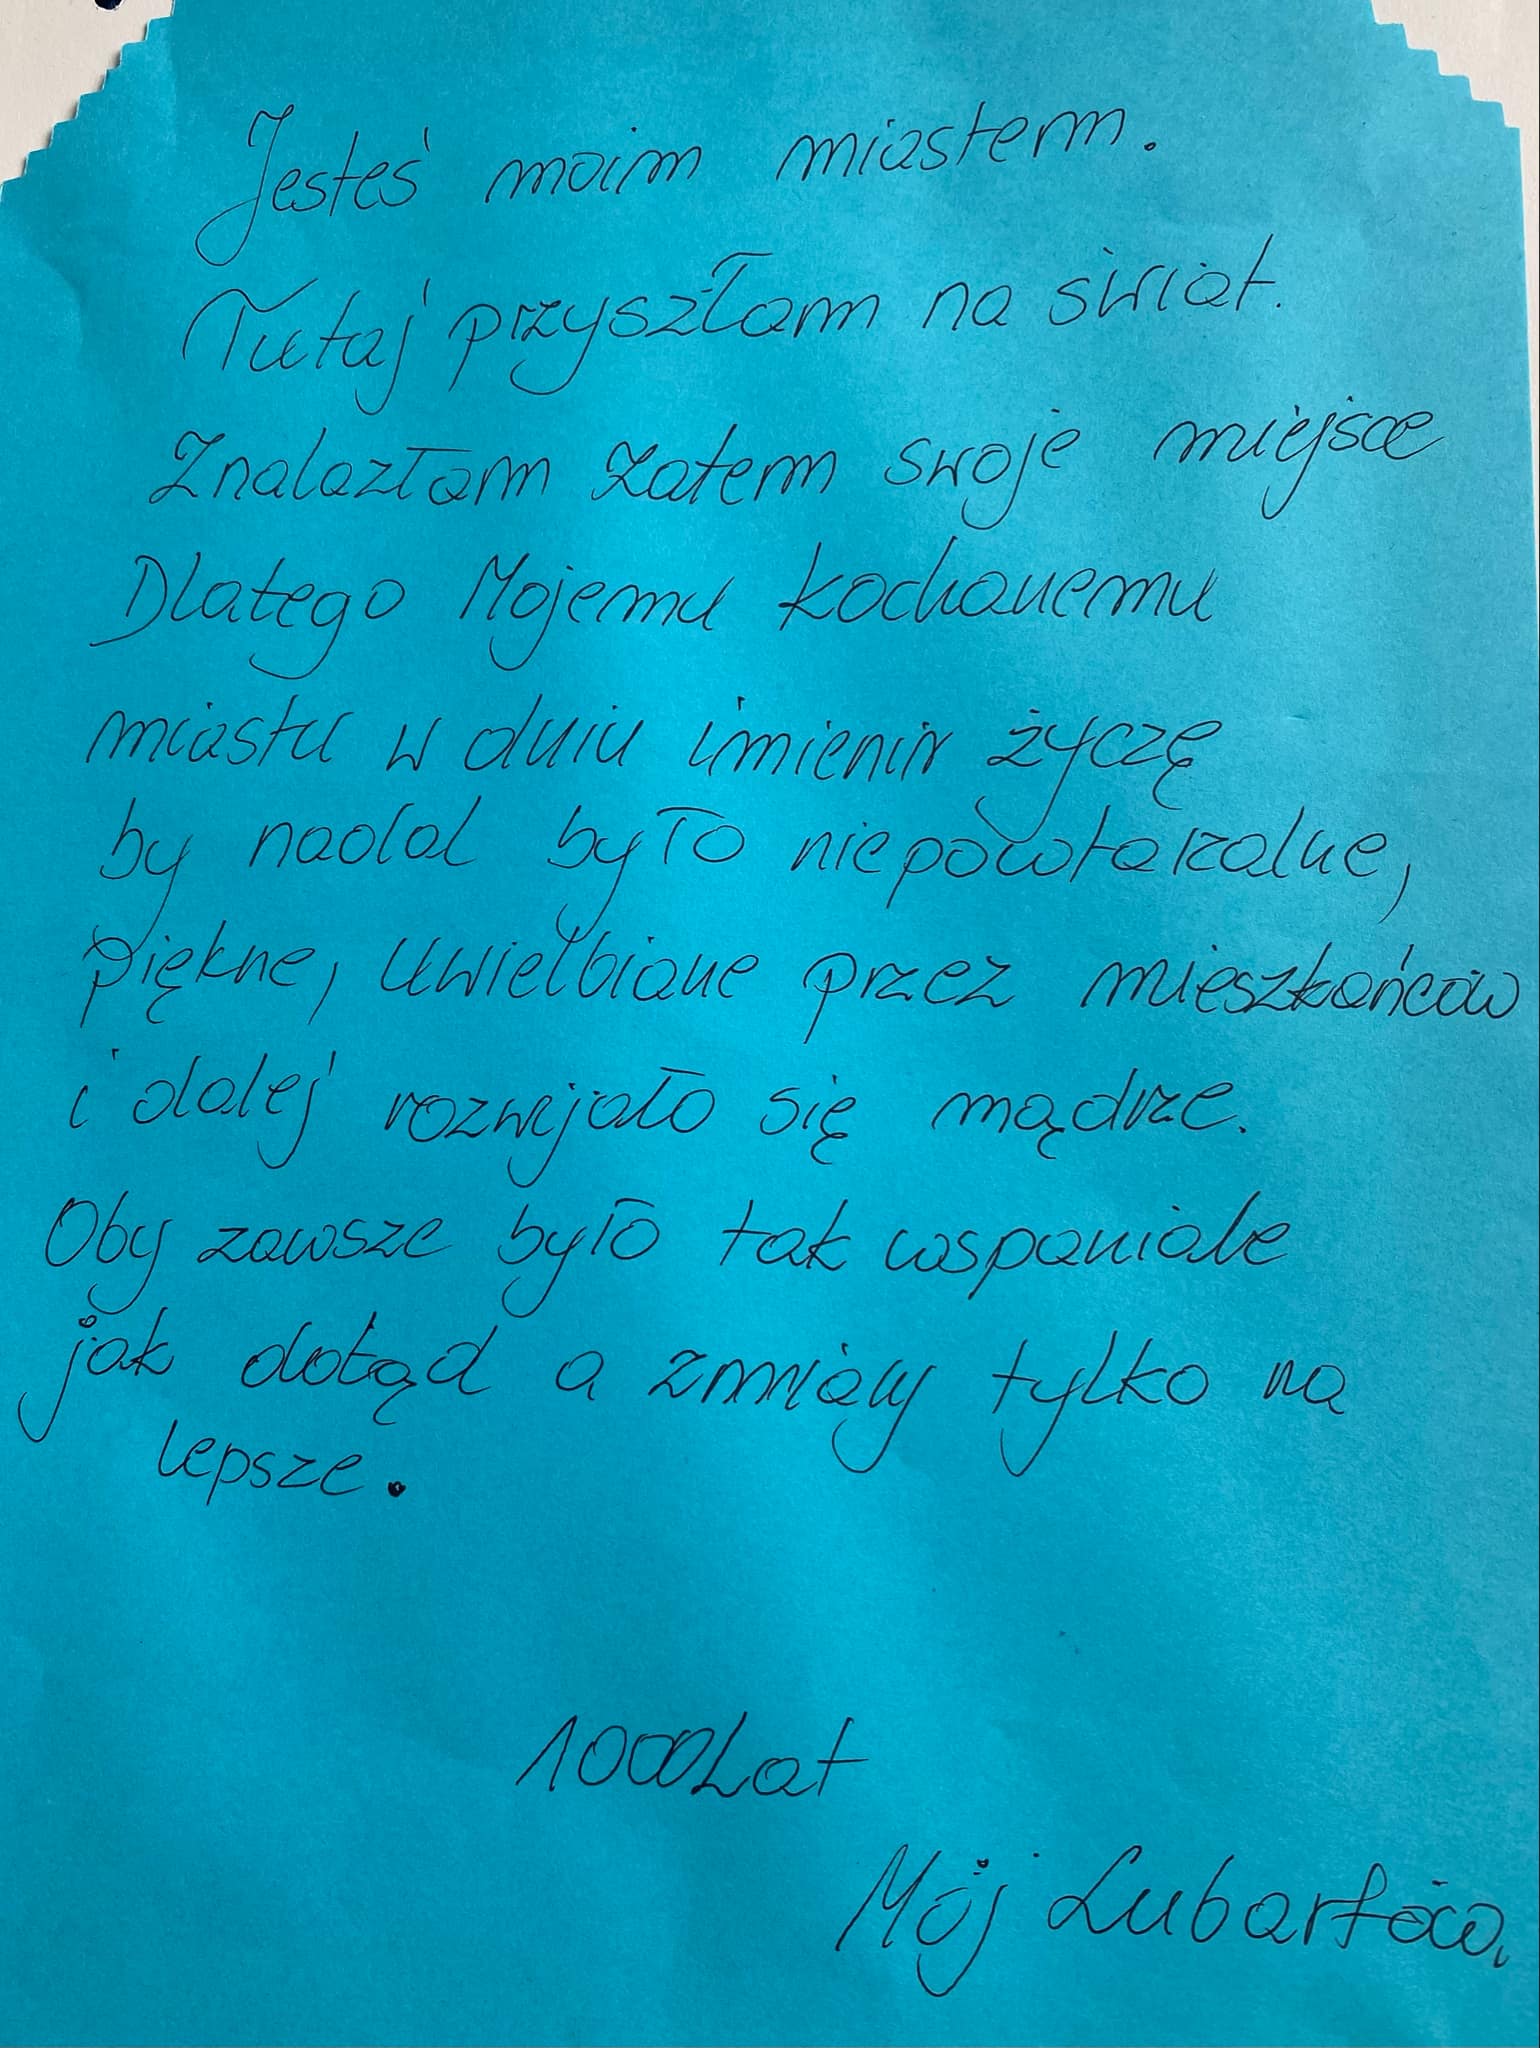 Jesteś moim miastem.
Tutaj przyszłam na świat.
Znalazłam zatem swoje miejsce
Dlatego Mojemu kochanemu
miastu w dniu imienin życzę
by nadal było niepowtarzalne,
piękne, uwielbiane przez mieszkańców
i dalej rozwijało się mądrze.
Oby zawsze było tak wspaniale
jak dotąd a zmiany tylko na
lepsze.
1000Lat
Mój Lubartów.